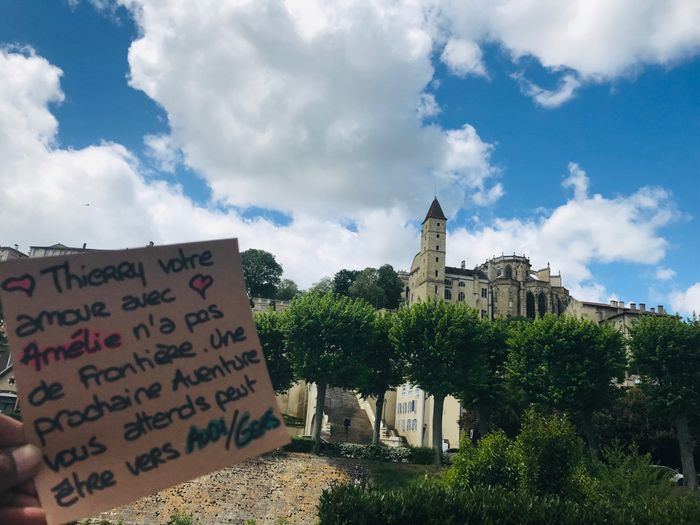 Thierry votre
amour avec
Amélie n'a pas
de frontière. Une
prochaine Aventure
vous attends peut
Etre vers Auch/Gers